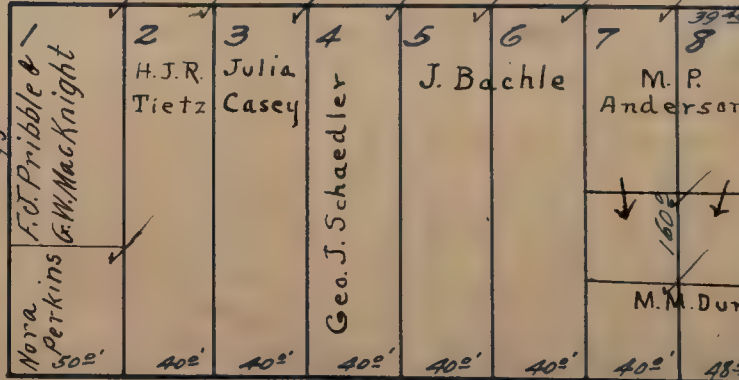 1
F.J. Pribble &
G.W. MacKnight
Nora
Perkins
50⁰'
2
H.J.R.
Tietz
40⁰'
3
Julia
Casey
40⁰'
4
Geo. J. Schaedler
40⁰'
5
6
J. Bachle
40⁰'
40⁰'
7
8
M. P.
Anderson
160⁰
M.M. Dur
40⁰'
48